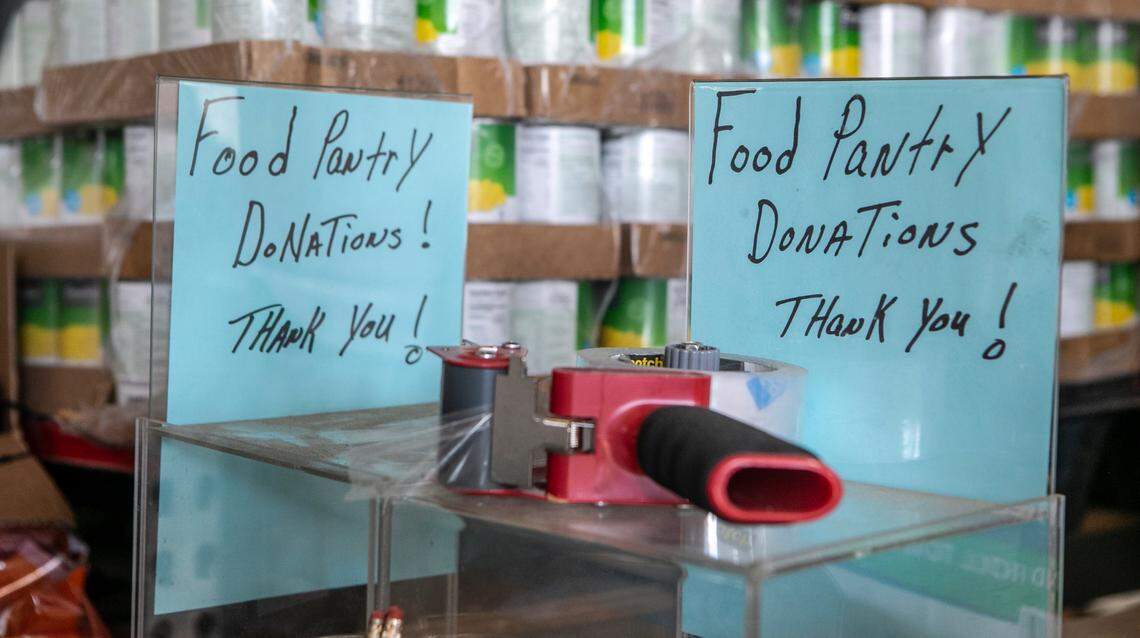 Food Pantry
Donations!
Thank you!
Food Pantry
Donations
Thank you!